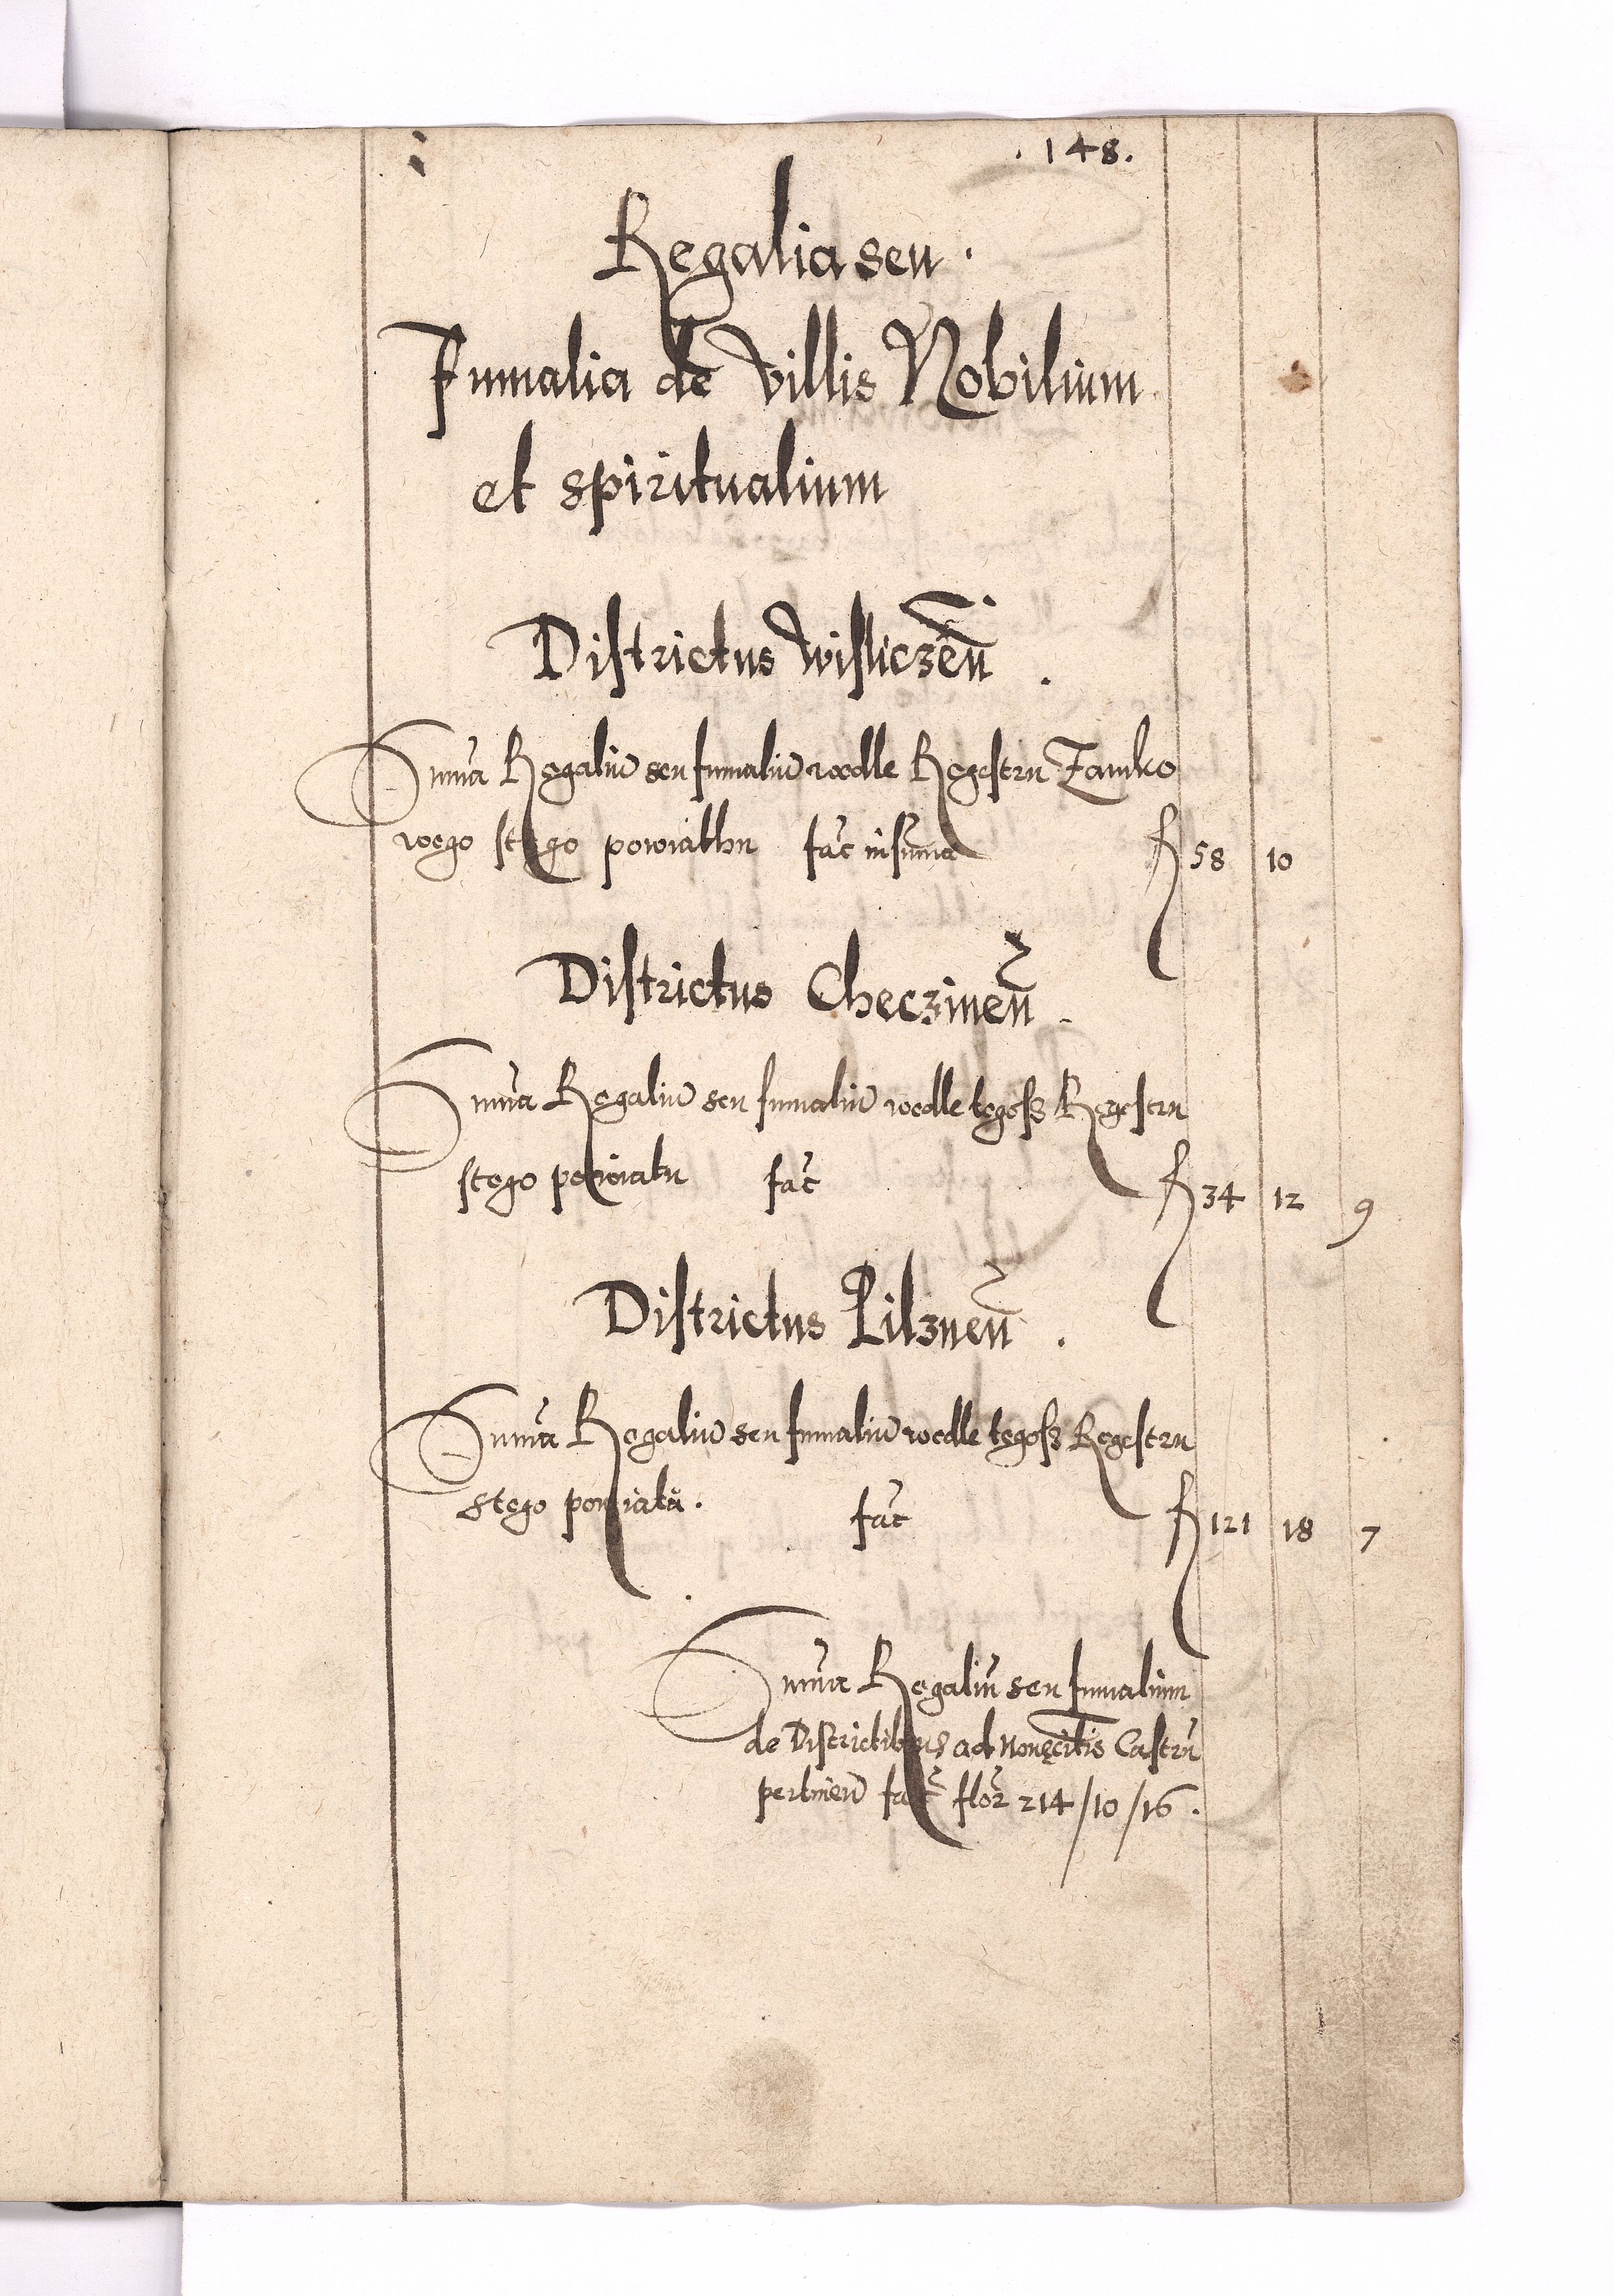 . 148.
Regalia seu
Fumalia de villis Nobilium
et spiritualium
Districtus Wisliczeñ .
Summa Regaliũ seu fumaliũ wedle Regestru Zamko
wego stego powiathu fac̃ in summa fl 58 10
Districtus Checzineñ .
Summa Regaliũ seu fumaliũ wedle tegosz Regestru
stego powiatu fac̃ fl 34 12 9
Districtus Pilzneñ .
Summa Regaliũ seu fumaliũ wedle tegosz Regestru
stego powiatu . fac̃ fl 121 18 7
Summa Regaliũ seu fumalium
de Districtibus ad Castrũ
pertineñ fac̃ flor̃ 214/10/16 .